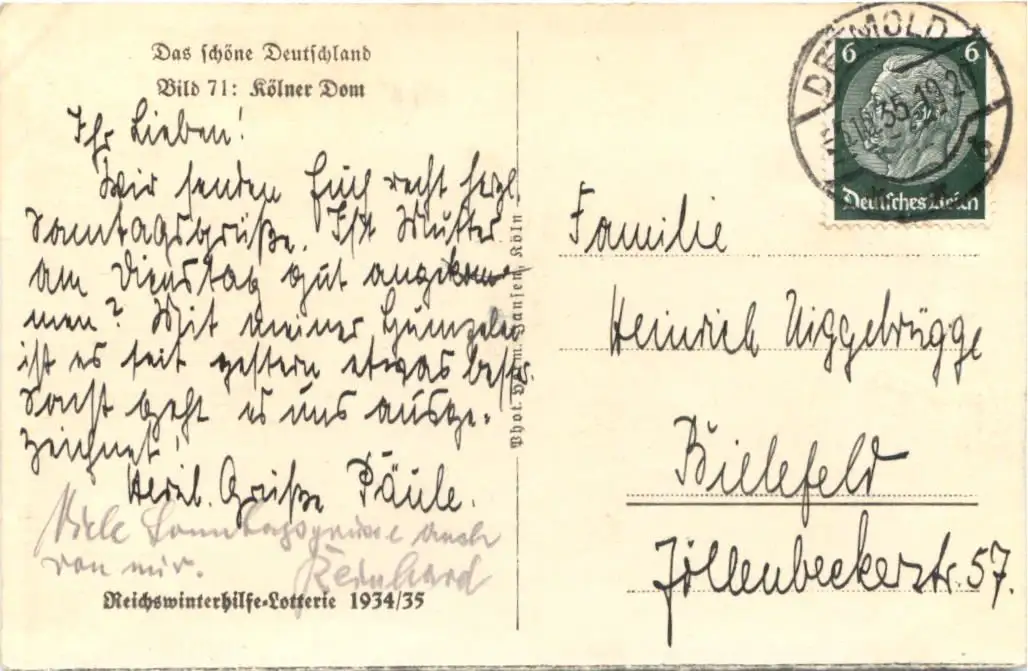 Das schöne Deutschland
Bild 71: Kölner Dom
Ihr Lieben!
Wir senden Euch recht herzl.
Sonntagsgrüße. Ist Mutter
am Dienstag gut angekom-
men? Mit meiner
ist es seit gestern etwas besser.
Sonst geht es uns ausge-
zeichnet!
Herzl. Grüße Päule.
Viele Sonntagsgrüsse auch
von mir. Reinhard
Reichswinterhilfe-Lotterie 1934/35
Phot. Jansen, Köln
DETMOLD
35.19-20
6 6
Deutsches Reich
Familie
Heinrich Niggebrügge
Bielefeld
Jöllenbeckerstr. 57.